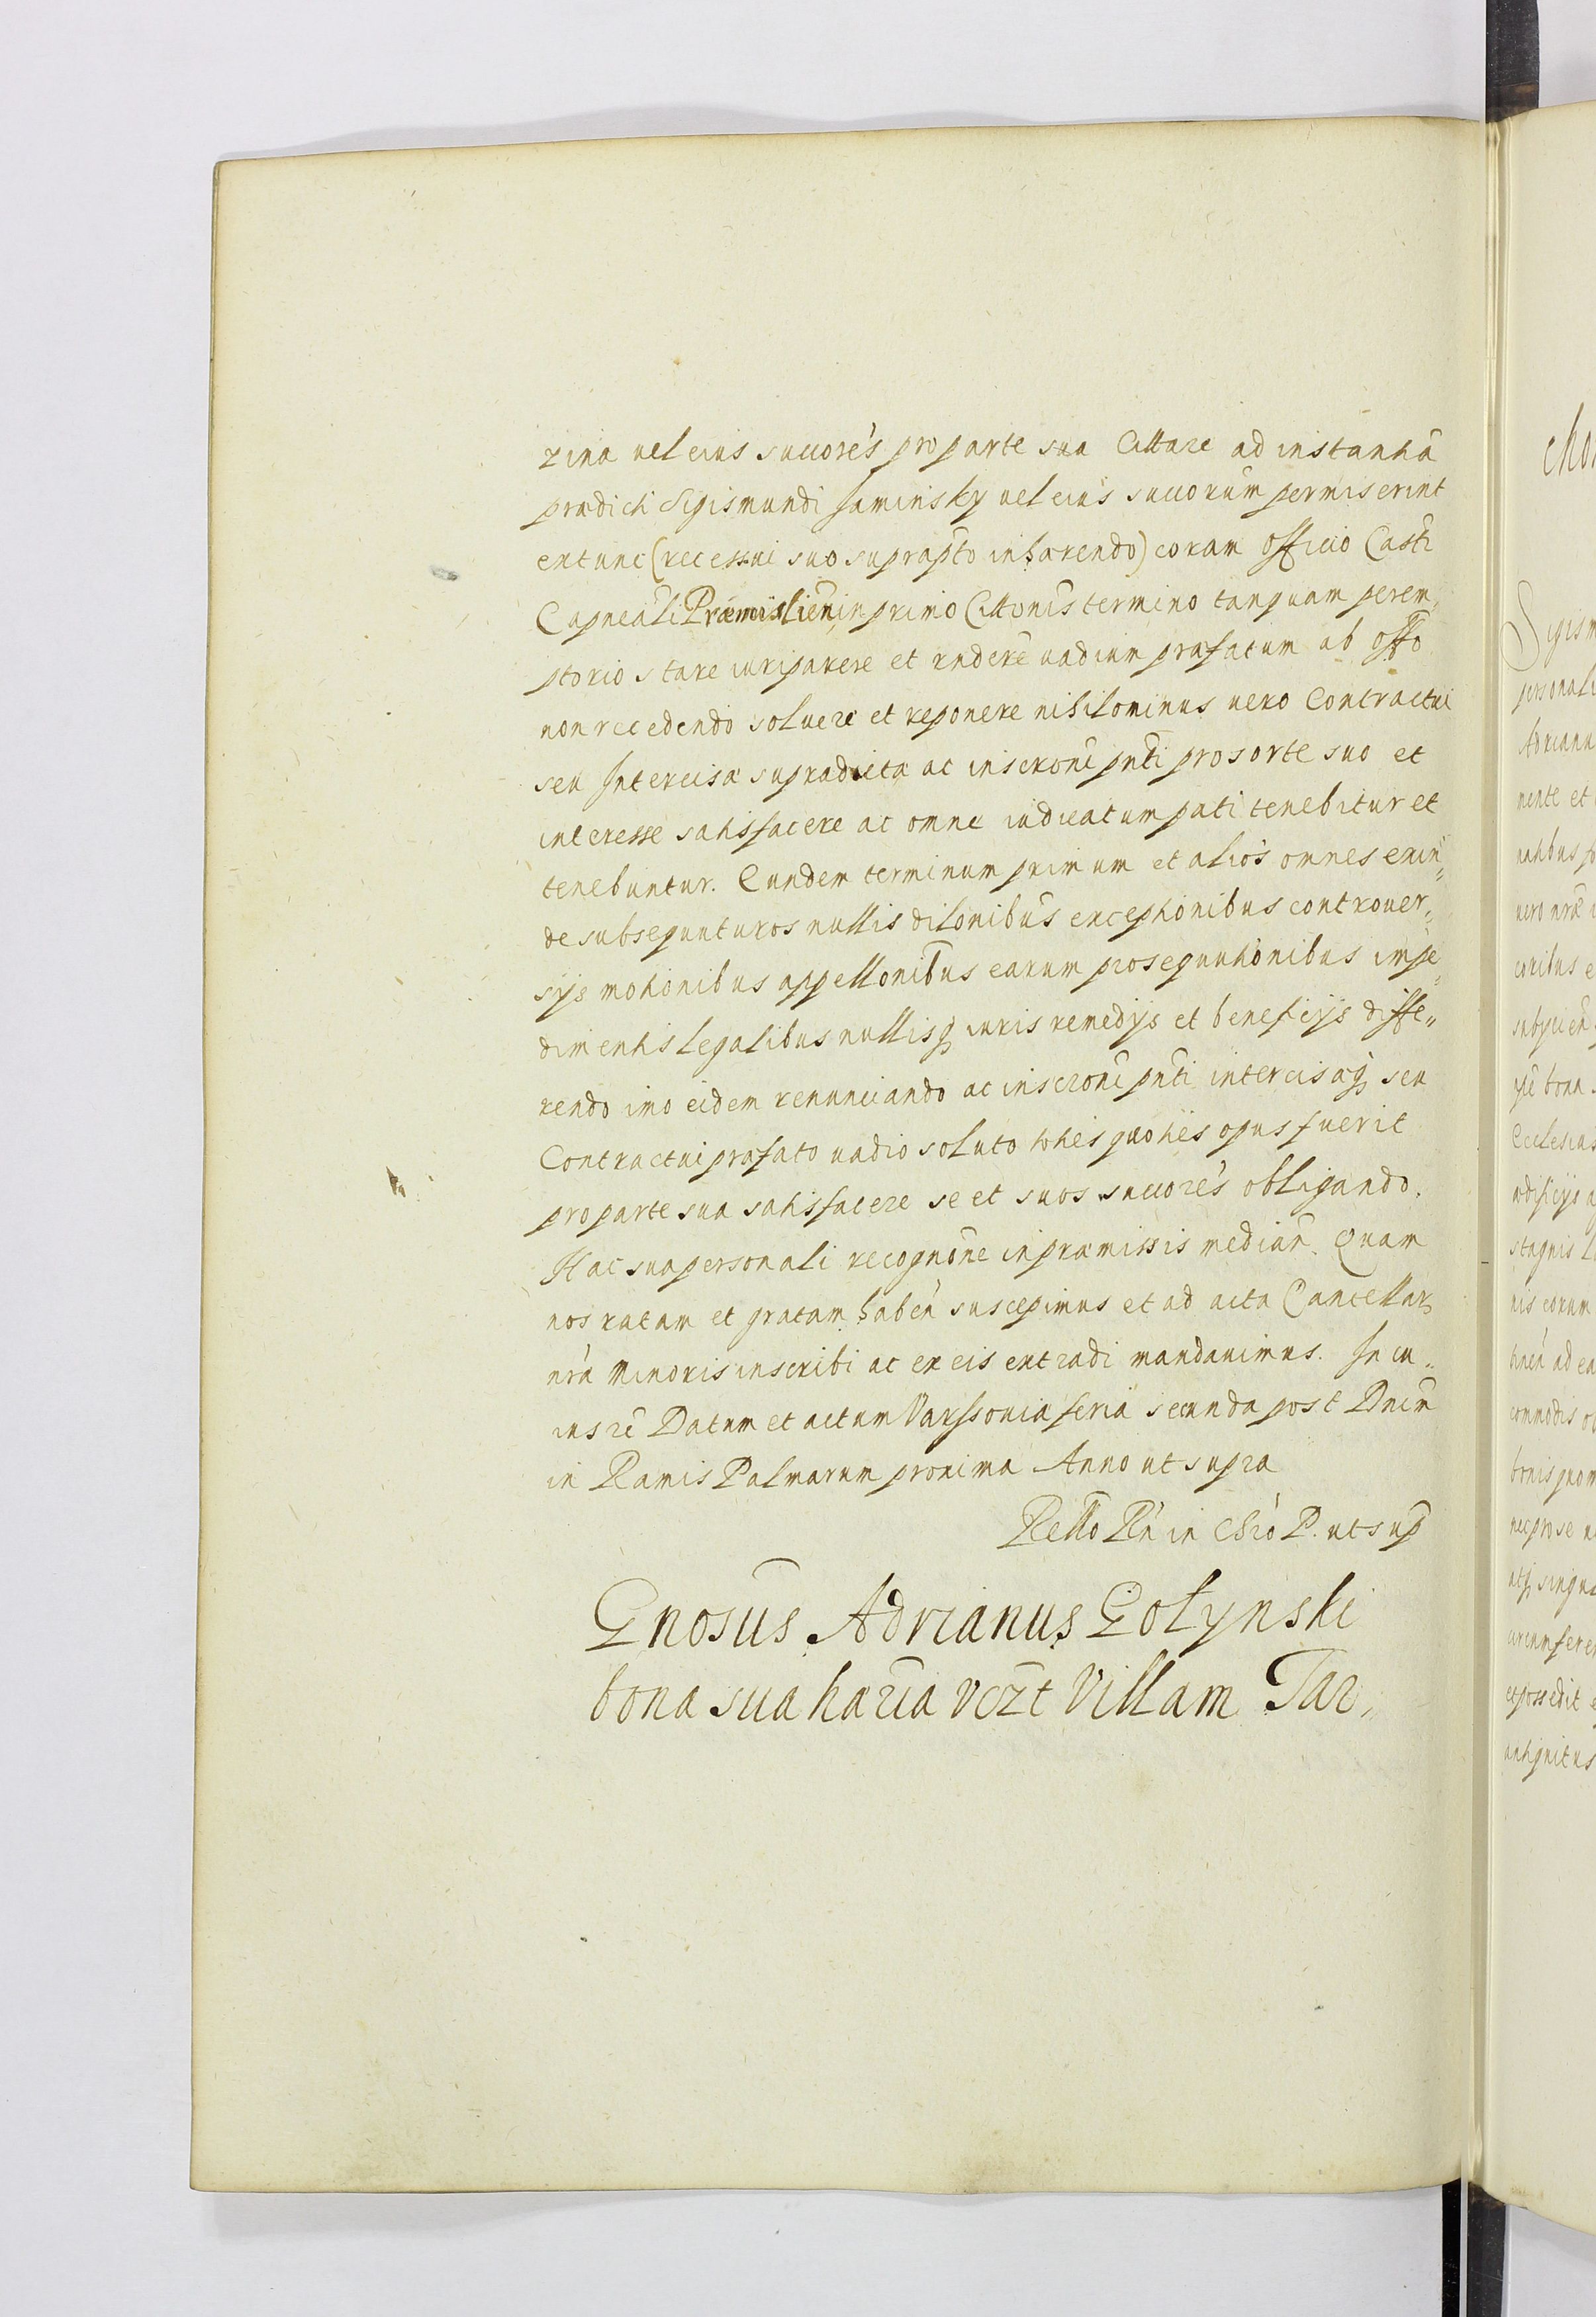 zina vel eius succores pro parte sua Cittare ad instantiã
prædicti Sigismundi Jaminsky vel eius succorum permiserint
extunc (recessui suo supraptõ inhærendo) coram Officio Casti
Capneali Præmislien in primo Cittonis termino tanquam perem,
ptorio stare iuri parere et rndere vadium præfatum ab offo
non recedendo solvere et reponere nihilominus vero Contractui
seu Intercisæ supradicta ac inscroni pnti pro sorte suo et
interesse satisfacere ac omne iudicatum pati tenebitur et
tenebuntur. Eundem terminum primum et alios omnes exin„
de subsequuturos nullis dilonibus exceptionibus controver„
sijs motionibus appellonibus earum prosequutionibus impe„
dimentis legalibus nullisq iuris remedijs et beneficijs diffe„
rendo imo eidem renunciando ac inscroni pnti intercisæq seu
Contractui præfato vadio soluto toties quoties opus fuerit
pro parte sua satisfacere se et suos succores obligando.
Hac sua personali recognone in præmissis median. Quam
nos ratam et gratam haben suscepimus et ad acta Cancellar
nra Minoris inscribi ac ex eis extradi mandavimus. In cu„
ius re Datum et actum Varssoviæ feria secunda post Dnicm
in Ramis Palmarum proxima Anno ut supra
Rello Rn in Chro P. ut sup
Gnosus Adrianus Gołynski
bona sua hæria vczt Villam Tar„
Sigism
personali
Adrianu
mente et
vero nræ
Ecclesias
stagnis
nis eorum
commodis
nec pro se